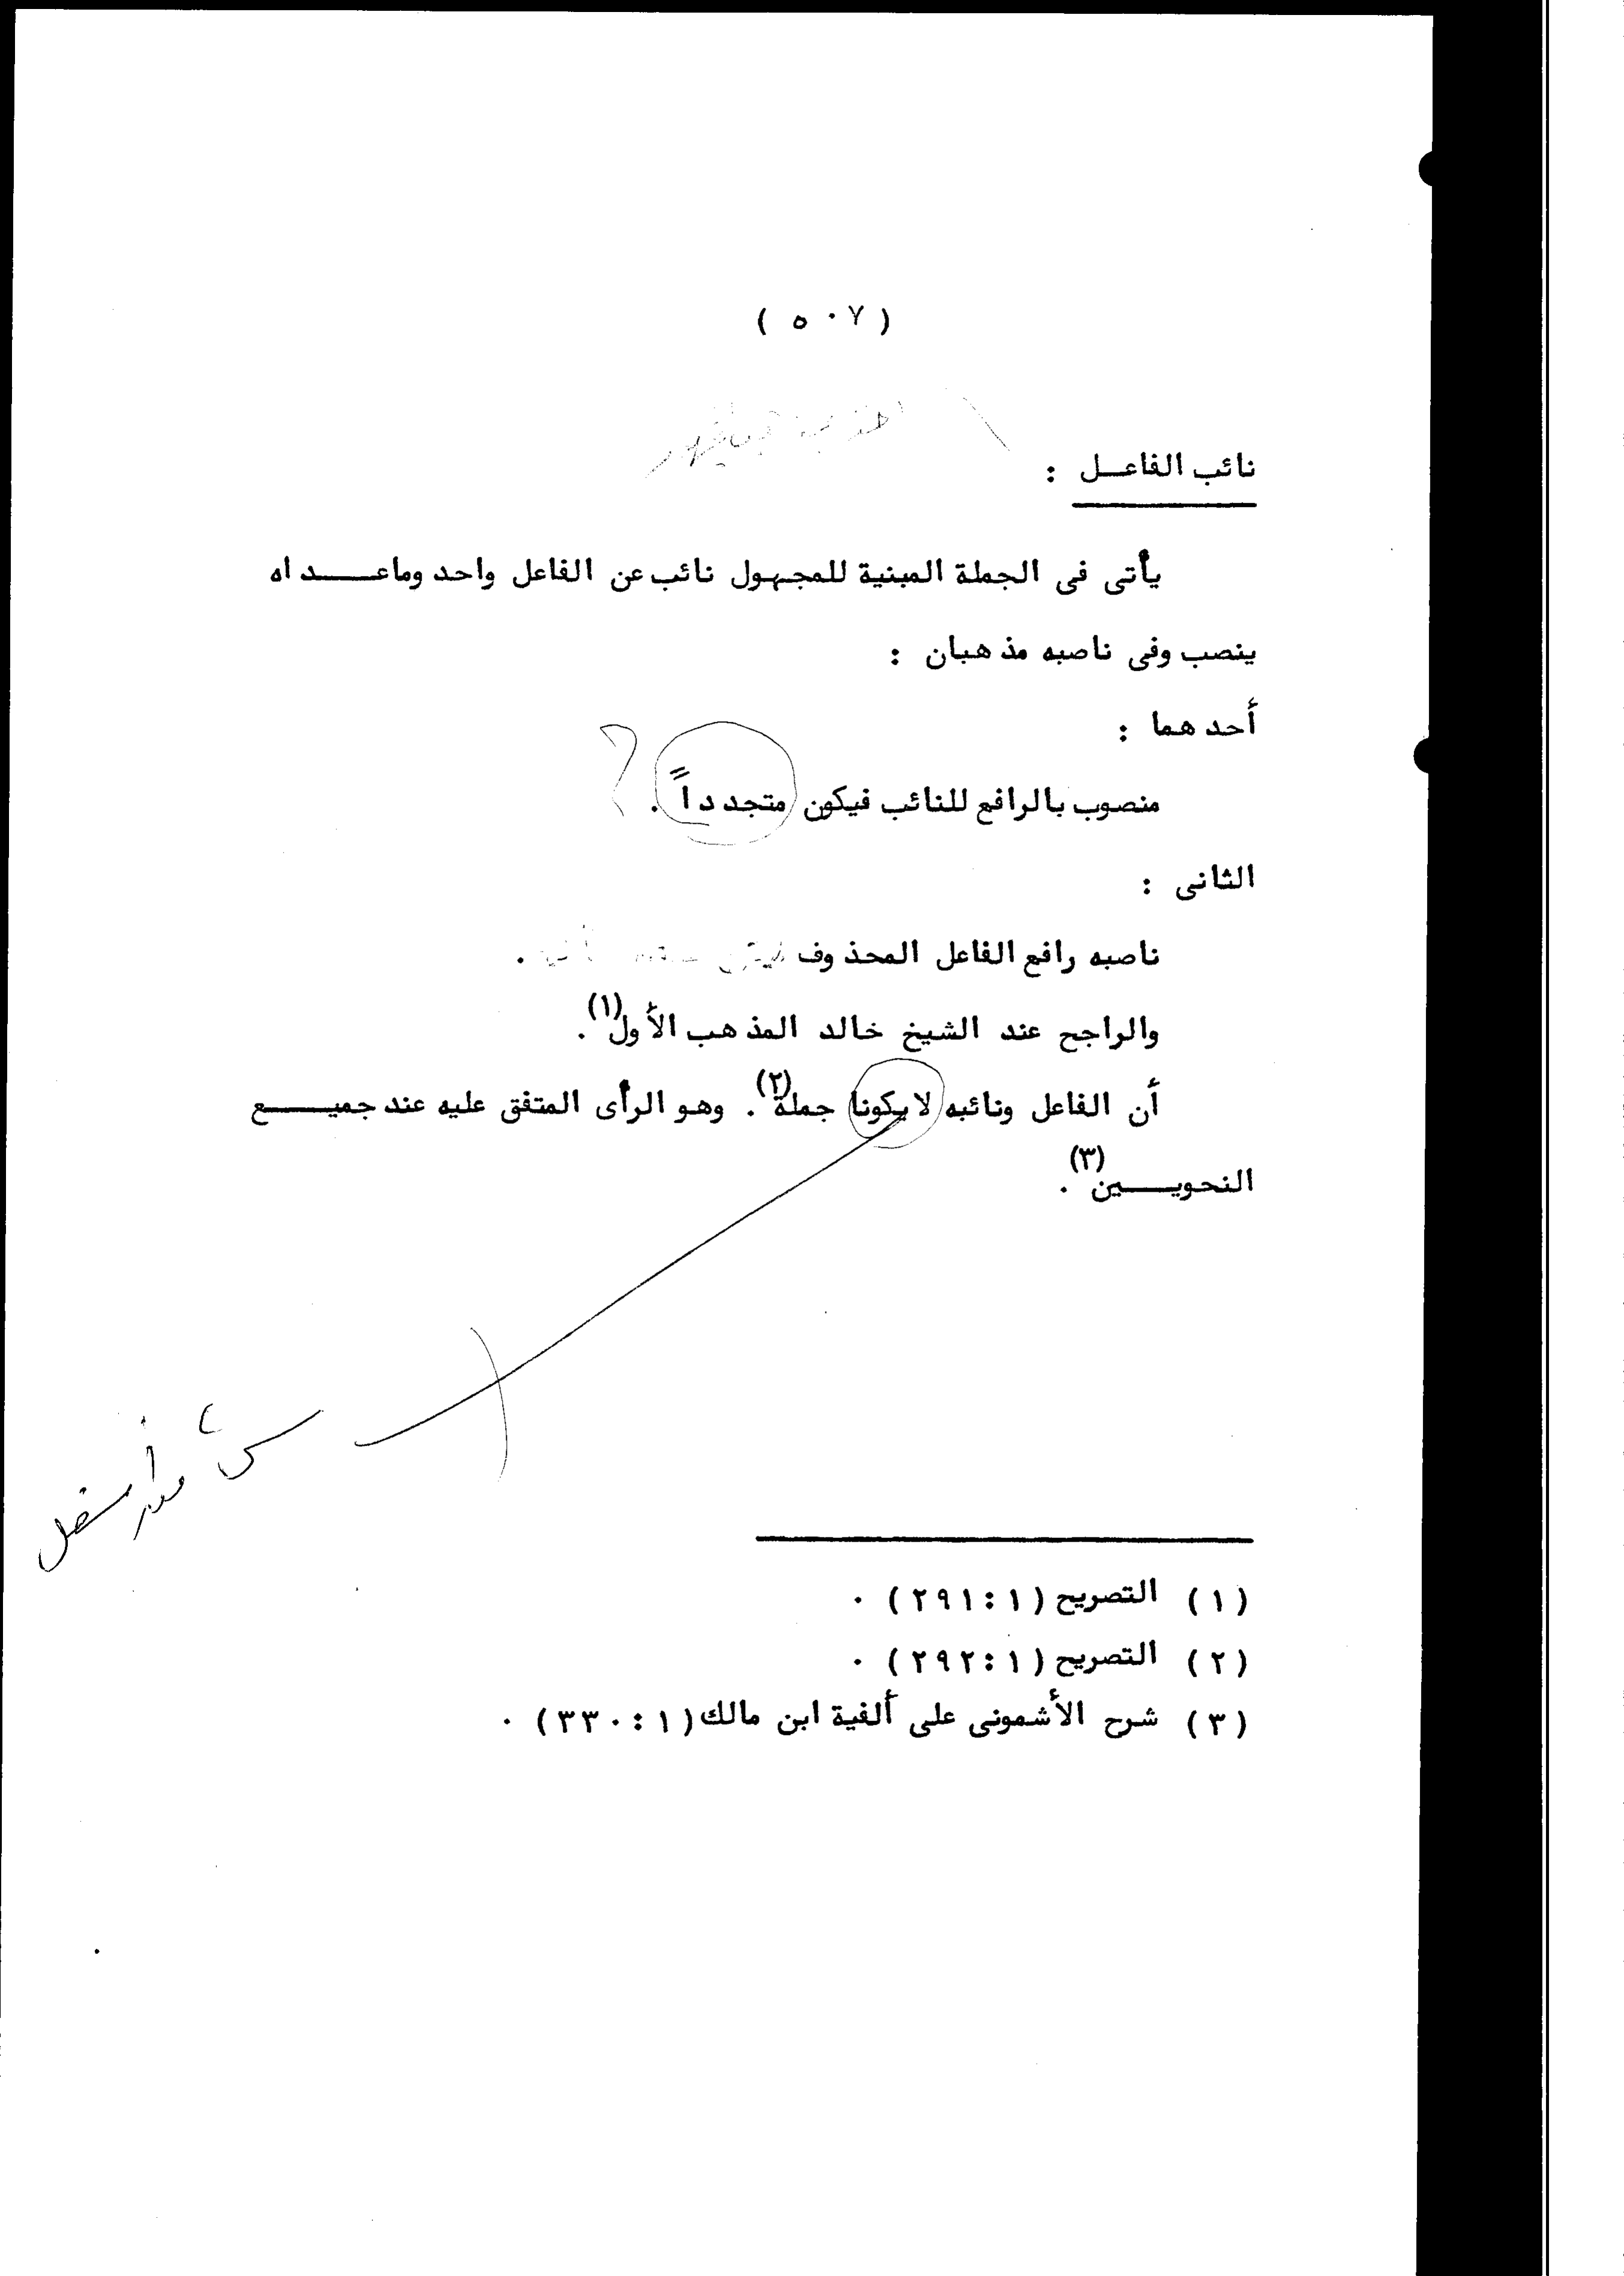 ( ٥٠٧ )
نائب الفاعـــل :
يأتى فى الجملة المبنية للمجهول نائب عن الفاعل واحد وماعــــداه
ينصب وفى ناصبه مذهبان :
أحدهما :
منصوب بالرافع للنائب فيكون متجدداً .
الثانى :
ناصبه رافع الفاعل المحذوف .
والراجح عند الشيخ خالد المذهب الأول(١).
أن الفاعل ونائبه لايكونا جملة(٢). وهو الرأى المتفق عليه عند جميــــع
النحويــــين(٣).
(١) التصريح (٢٩١:١) .
(٢) التصريح (٢٩٢:١) .
(٣) شرح الأشمونى على ألفية ابن مالك (٣٣٠:١) .